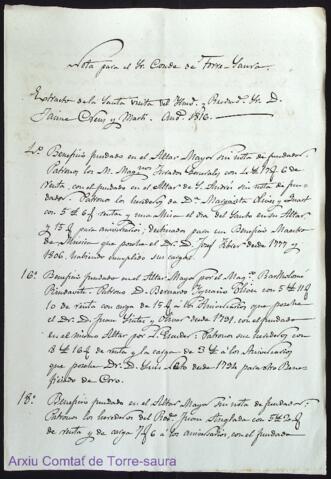 Nota para el Sr. Conde de Torre-Saura.
Extracto de la Santa visita del Illmo. y Revdmo. Sr. D.
Jaime Creus y Marti. Año 1816.
4º. Beneficio fundado en el Altar Mayor sin nota de fundador.
Patronos los M. Magcos Jurados Generales con 4 17 6 de
renta, con el fundado en el Altar de S. Andrés sin nota de fun-
dador. Patronos los herederos de Dª. Margarita Olives y Quart
con 5 6 renta y una Misa el dia del Santo en su Altar
y 15 para aniversarios; destinado para un Beneficio Maestro
de Musica que poseía el Dr. D. Josef desde 1777 y
1806, habiendo cumplido sus cargas.
16º. Beneficio fundado en el Altar Mayor por el Magco. Bartholome
Patrono D. Bernardo Ignacio Olives con 5 11
10 de renta con carga de 15 á los Aniversarios que poseía
el Dr. D. Juan y Oliver desde 1791. con el fundado
en el mismo Altar por P. Patronos sus herederos con
8 16 de renta y la carga de 3 á los Aniversarios
que poseía Dr. D. Luis desde 1794 para otro Bene-
ficiado de Coro.
18º. Beneficio fundado en el Altar Mayor sin nota de fundador.
Patronos los herederos del Rdo. Juan Anglada con 5 2
de renta y de carga 7 6 á los aniversarios, con el fundado
Arxiu Comtat de Torre-saura